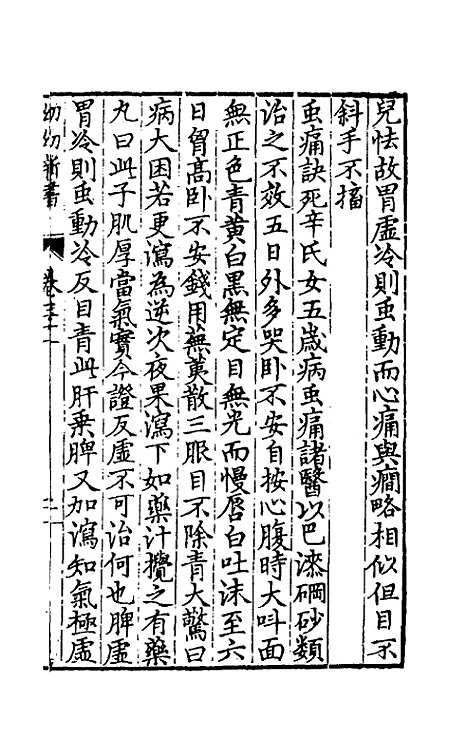 兒怯故胃虛冷則䖝動而心痛與癇略相似但目不
斜手不搐
䖝痛訣死辛氏女五歲病䖝痛諸醫以巴漆碙砂類
治之不效五日外多哭卧不安自按心腹時大呌面
無正色青黃白黑無定目無光而慢唇白吐沫至六
日胷高卧不安錢用蕪荑散三服目不除青大驚曰
病大困若更瀉為逆次夜果瀉下如藥汁攪之有藥
丸曰此子肌厚當氣實今證反虛不可治何也脾虛
胃冷則䖝動冷反目青此肝乗脾又加瀉知氣極虛
幼幼新書
卷三十一
二